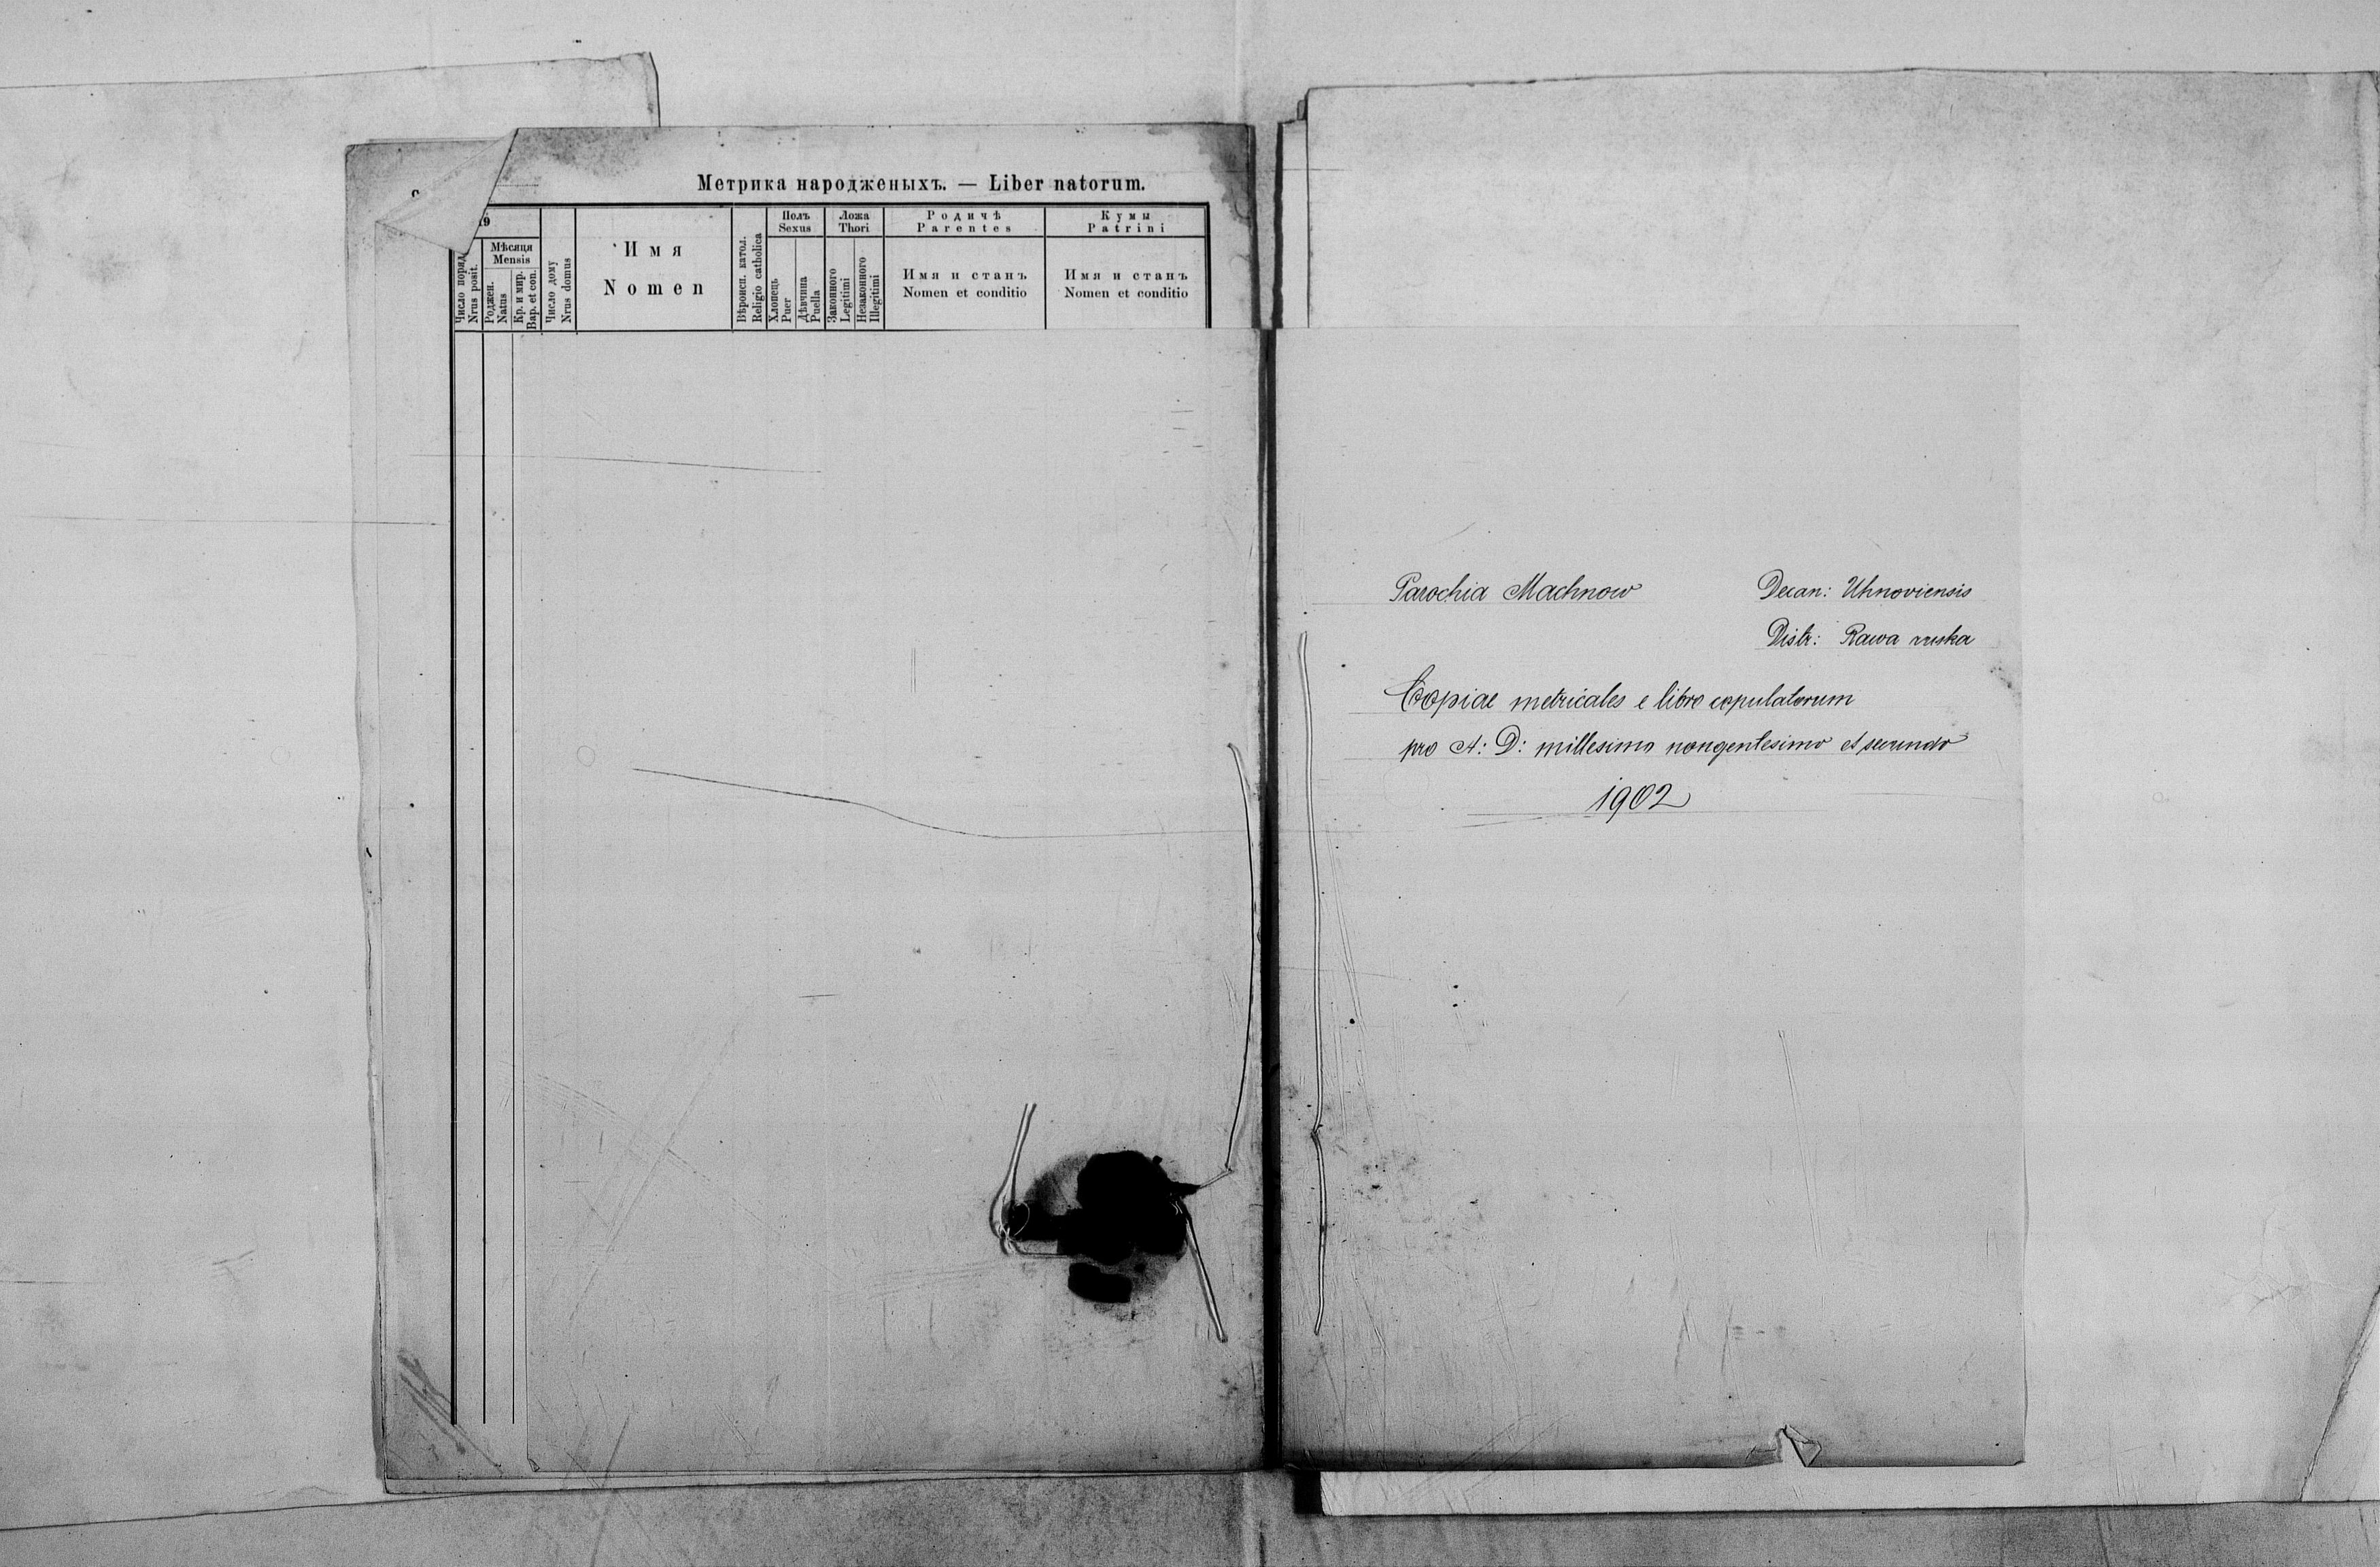 Метрика народженыхъ. — Liber natorum.
19
Число поряд.
Nrus posit.
Мѣсяця
Mensis
Роджен.
Natus
Кр. и мир.
Bap. et con.
Число дому
Nrus domus
Имя
Nomen
Вѣроисп. катол.
Religio catholica
Полъ
Sexus
Хлопець
Puer
Дѣвчина
Puella
Ложа
Thori
Законного
Legitimi
Незаконного
Illegitimi
Родичѣ
Parentes
Имя и станъ
Nomen et conditio
Кумы
Patrini
Имя и станъ
Nomen et conditio
Parochia Machnow
Decan: Uhnoviensis
Distr: Rawa ruska
Copiae metricales e libro copulatorum
pro A: D: millesimo nongentesimo et secundo
1902